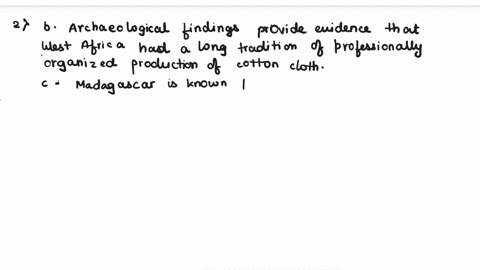 2) b. Archaeological findings provide evidence that
West Africa had a long tradition of professionally
organized production of cotton cloth.
c - Madagascar is known